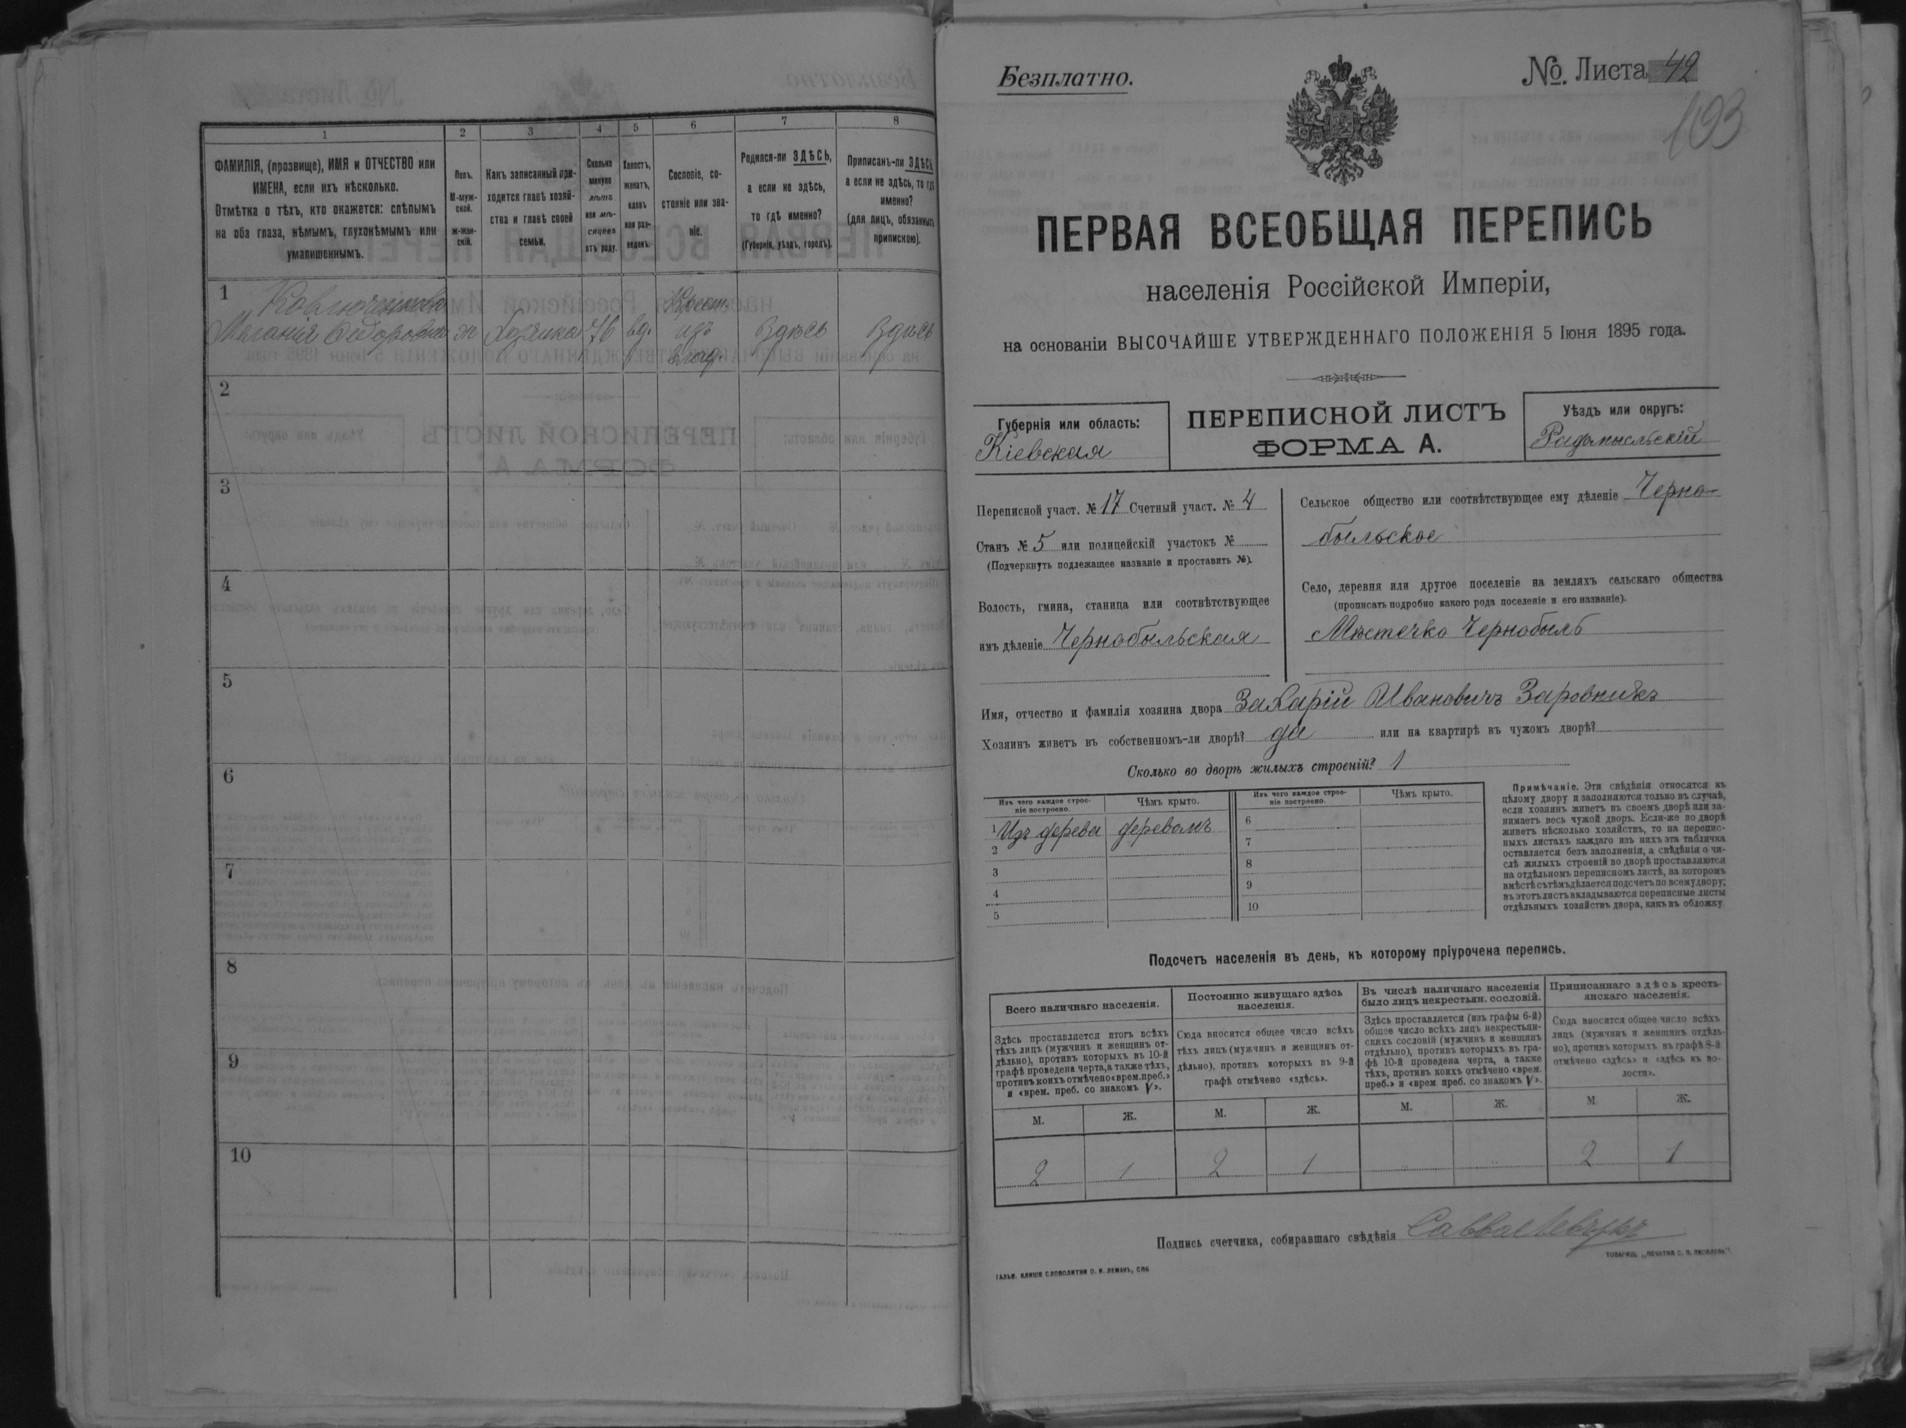 1 2 3 4 5 6 7 8
ФАМИЛІЯ, (прозвище), ИМЯ и ОТЧЕСТВО или
ИМЕНА, если ихъ нѣсколько.
Отмѣтка о тѣхъ, кто окажется: слѣпымъ
на оба глаза, нѣмымъ, глухонѣмымъ или
умалишеннымъ.
Полъ.
М-муж-
ской.
ж-жен-
скій.
Какъ записанный при-
ходится главѣ хозяй-
ства и главѣ своей
семьи.
Сколько
минуло
лѣтъ
или мѣ-
сяцевъ
отъ роду.
Холостъ,
женатъ,
вдовъ
или раз-
веденъ.
Сословіе, со-
стояніе или зва-
ніе.
Родился-ли ЗДѢСЬ,
а если не здѣсь,
то гдѣ именно?
(Губернія, уѣздъ, городъ).
Приписанъ-ли ЗДѢСЬ,
а если не здѣсь, то гдѣ
именно?
(для лицъ, обязанныхъ
припискою).
1
Меланія Ѳедоровна ж Хозяйка 76 вд. Крест. изъ владѣ. Здѣсь Здѣсь
2
3
4
5
6
7
8
9
10
Безплатно.
№ Листа 42
193
ПЕРВАЯ ВСЕОБЩАЯ ПЕРЕПИСЬ
населенія Россійской Имперіи,
на основаніи ВЫСОЧАЙШЕ УТВЕРЖДЕННАГО ПОЛОЖЕНІЯ 5 Іюня 1895 года.
Губернія или область:
Кіевская
ПЕРЕПИСНОЙ ЛИСТЪ
ФОРМА А.
Уѣздъ или округъ:
Радомысльскій
Переписной участ. № 17 Счетный участ. № 4
Станъ № 5 или полицейскій участокъ №
(Подчеркнуть подлежащее названіе и проставить №).
Волость, гмина, станица или соотвѣтствующее
имъ дѣленіе Чернобыльская
Сельское общество или соотвѣтствующее ему дѣленіе Черно-
быльское
Село, деревня или другое поселеніе на земляхъ сельскаго общества
(прописать подробно какого рода поселеніе и его названіе).
Мѣстечко Чернобыль
Имя, отчество и фамилія хозяина двора Захарій Ивановичъ Заровникъ
Хозяинъ живетъ въ собственномъ-ли дворѣ? да или на квартирѣ въ чужомъ дворѣ?
Сколько во дворѣ жилыхъ строеній? 1
Изъ чего каждое строе-
ніе построено.
Чѣмъ крыто.
Изъ чего каждое строе-
ніе построено.
Чѣмъ крыто.
1 Изъ дерева деревомъ
2
3
4
5
6
7
8
9
10
Примѣчаніе. Эти свѣдѣнія относятся къ
цѣлому двору и заполняются только въ случаѣ,
если хозяинъ живетъ въ своемъ дворѣ или за-
нимаетъ весь чужой дворъ. Если-же во дворѣ
живетъ нѣсколько хозяйствъ, то на перепис-
ныхъ листахъ каждаго изъ нихъ эта табличка
оставляется безъ заполненія, а свѣдѣнія о чи-
слѣ жилыхъ строеній во дворѣ проставляются
на отдѣльномъ переписномъ листѣ, на которомъ
вмѣстѣ съ тѣмъ дѣлается подсчетъ по всему двору;
въ этотъ листъ вкладываются переписные листы
отдѣльныхъ хозяйствъ двора, какъ въ обложку
Подсчетъ населенія въ день, къ которому пріурочена перепись.
Всего наличнаго населенія.
Здѣсь проставляется итогъ всѣхъ
тѣхъ лицъ (мужчинъ и женщинъ от-
дѣльно), противъ которыхъ въ 10-й
графѣ проведена черта, а также тѣхъ,
противъ коихъ отмѣчено «врем. преб.»
и «врем. преб. со знакомъ V».
Постоянно живущаго здѣсь
населенія.
Сюда вносится общее число всѣхъ
тѣхъ лицъ (мужчинъ и женщинъ от-
дѣльно), противъ которыхъ въ 9-й
графѣ отмѣчено «здѣсь».
Въ числѣ наличнаго населенія
было лицъ некрестьян. сословій.
Здѣсь проставляется (изъ графы 6-й)
общее число всѣхъ лицъ некрестьян-
скихъ сословій (мужчинъ и женщинъ
отдѣльно), противъ которыхъ въ гра-
фѣ 10-й проведена черта, а также
тѣхъ, противъ коихъ отмѣчено «врем.
преб.» и «врем. преб. со знакомъ V».
Приписаннаго здѣсь кресть-
янскаго населенія.
Сюда вносится общее число всѣхъ
лицъ (мужчинъ и женщинъ отдѣль-
но), противъ которыхъ въ графѣ 8-й
отмѣчено «здѣсь» и «здѣсь въ во-
лости».
М. Ж. М. Ж. М. Ж. М. Ж.
2 1 2 1 2 1
Подпись счетчика, собиравшаго свѣдѣнія
ГАЛЬВ. КЛИШЕ СЛОВОЛИТНИ О. И. ЛЕМАНЪ, СПБ
ТОВАРИЩ. „ПЕЧАТНЯ С. П. ЯКОВЛЕВА“